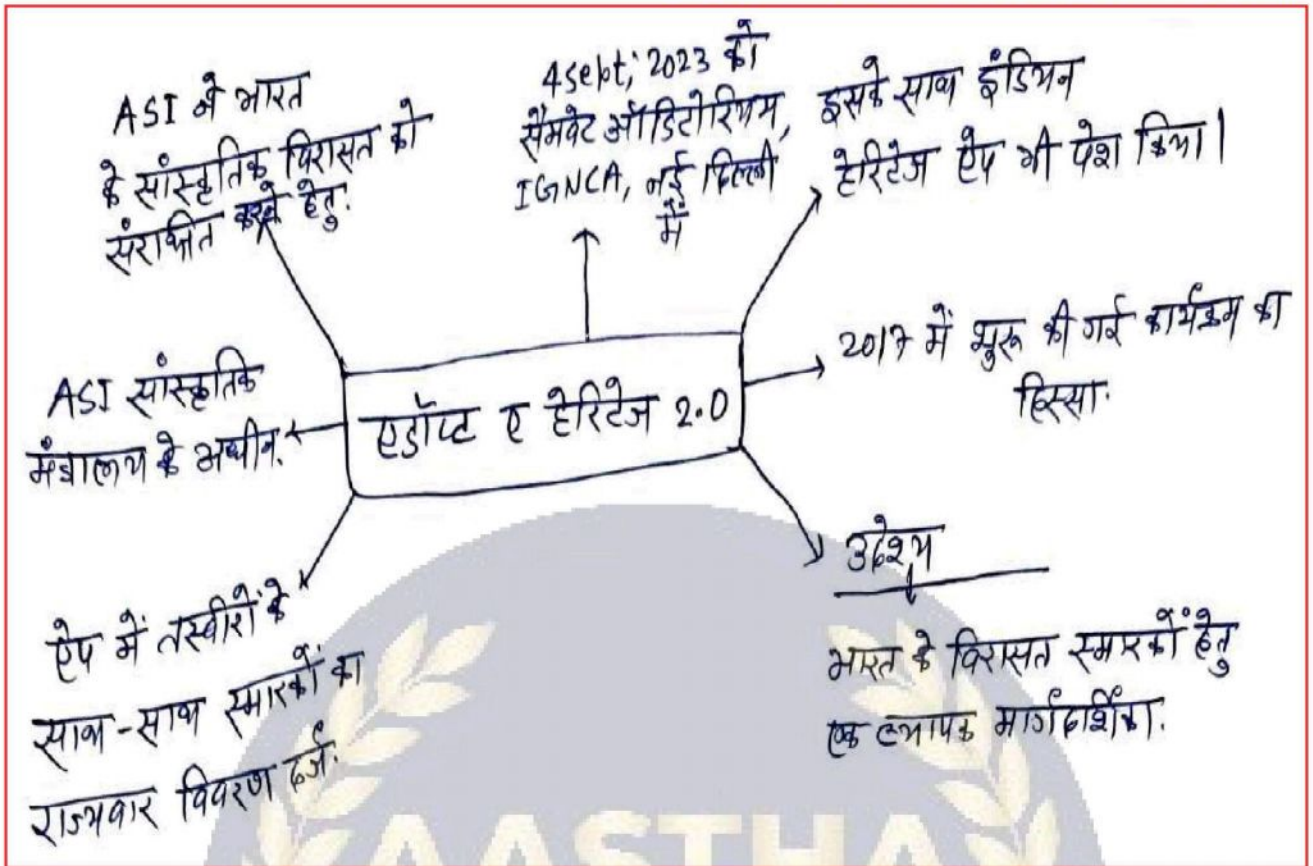 ASI ने भारत
के सांस्कृतिक विरासत को
संरक्षित करने हेतु.
4 Sept; 2023 को
सैमवेट ऑडिटोरियम,
IGNCA, नई दिल्ली
में
इसके साथ इंडियन
हेरिटेज ऐप भी पेश किया।
ASI सांस्कृतिक
मंत्रालय के अधीन.
एडॉप्ट ए हेरिटेज 2.0
2017 में शुरू की गई कार्यक्रम का
हिस्सा.
ऐप में तस्वीरों के
साथ-साथ स्मारकों का
राज्यवार विवरण दर्ज.
उद्देश्य
भारत के विरासत स्मारकों हेतु
एक व्यापक मार्गदर्शिका.
AASTHA